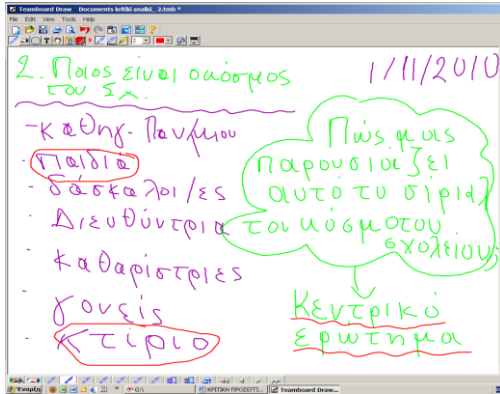 Teamboard Draw Documents kritki analki_ 2.tmb *
File Edit View Tools Help
2. Ποιος είναι ο κόσμος
του Σχ.
1/11/2010
- Καθηγ. Παν/μιου
· Παιδιά
- δάσκαλοι/ες
· Διευθύντρια
· καθαρίστριες
· γονείς
· Κτίριο
Πώς μας
παρουσιάζει
αυτό το σίριαλ
τον κόσμο του
σχολείου;
Κεντρικό
ερώτημα
Έναρξη
ΚΡΙΤΙΚΗ ΠΡΟΣΕΓΓΙ...
Teamboard Draw...